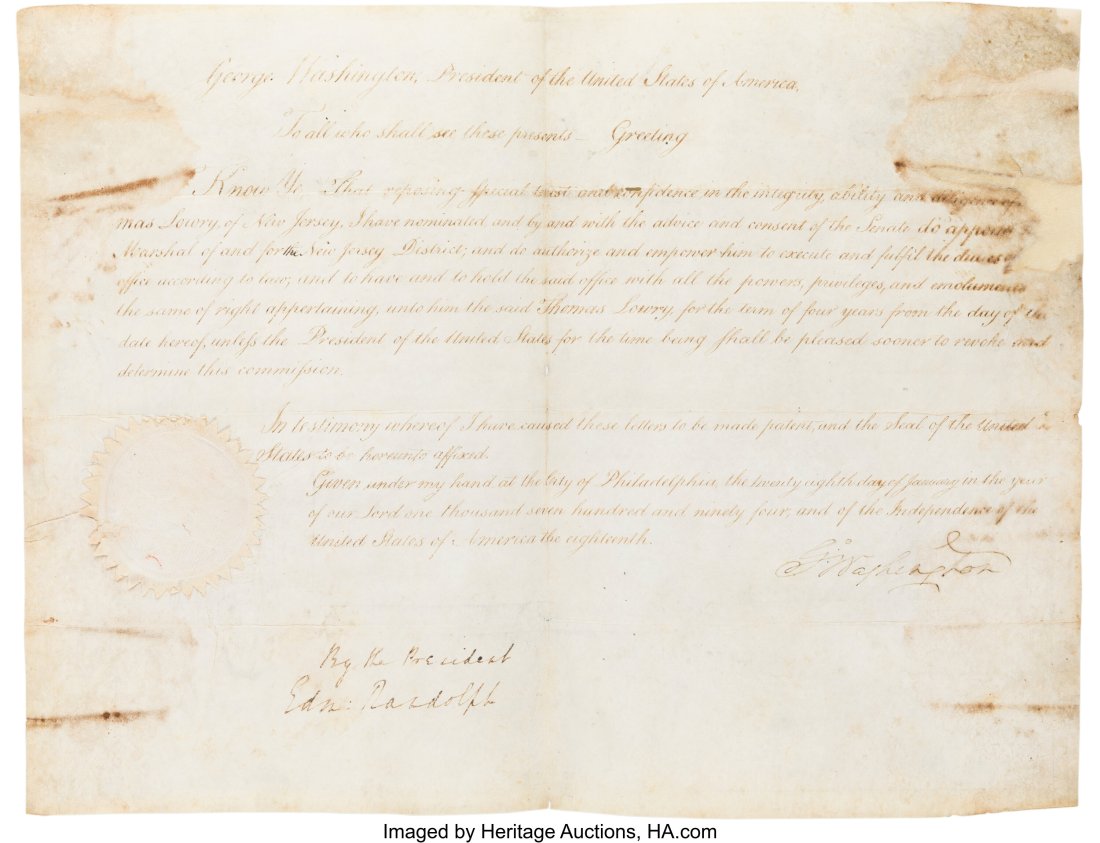 George Washington, President of the United States of America,
To all who shall see these presents – Greeting
Know Ye, That reposing special trust and confidence in the integrity, ability, and diligence of
mas Lowry, of New Jersey, I have nominated and by and with the advice and consent of the Senate do appoint
Marshal of and for the New Jersey District; and do authorize and empower him to execute and fulfil the duties of
office according to law; and to have and to hold the said office with all the powers, privileges, and emoluments
the same of right appertaining, unto him the said Thomas Lowry, for the term of four years from the day of the
date hereof, unless the President of the United States for the time being shall be pleased sooner to revoke and
determine this commission.
In testimony whereof I have caused these letters to be made patent, and the Seal of the United
States to be hereunto affixed.
Given under my hand at the City of Philadelphia, the twenty eighth day of January in the year
of our Lord one thousand seven hundred and ninety four, and of the Independence of the
United States of America the eighteenth.
G. Washington
By the President
Edm: Randolph
Imaged by Heritage Auctions, HA.com